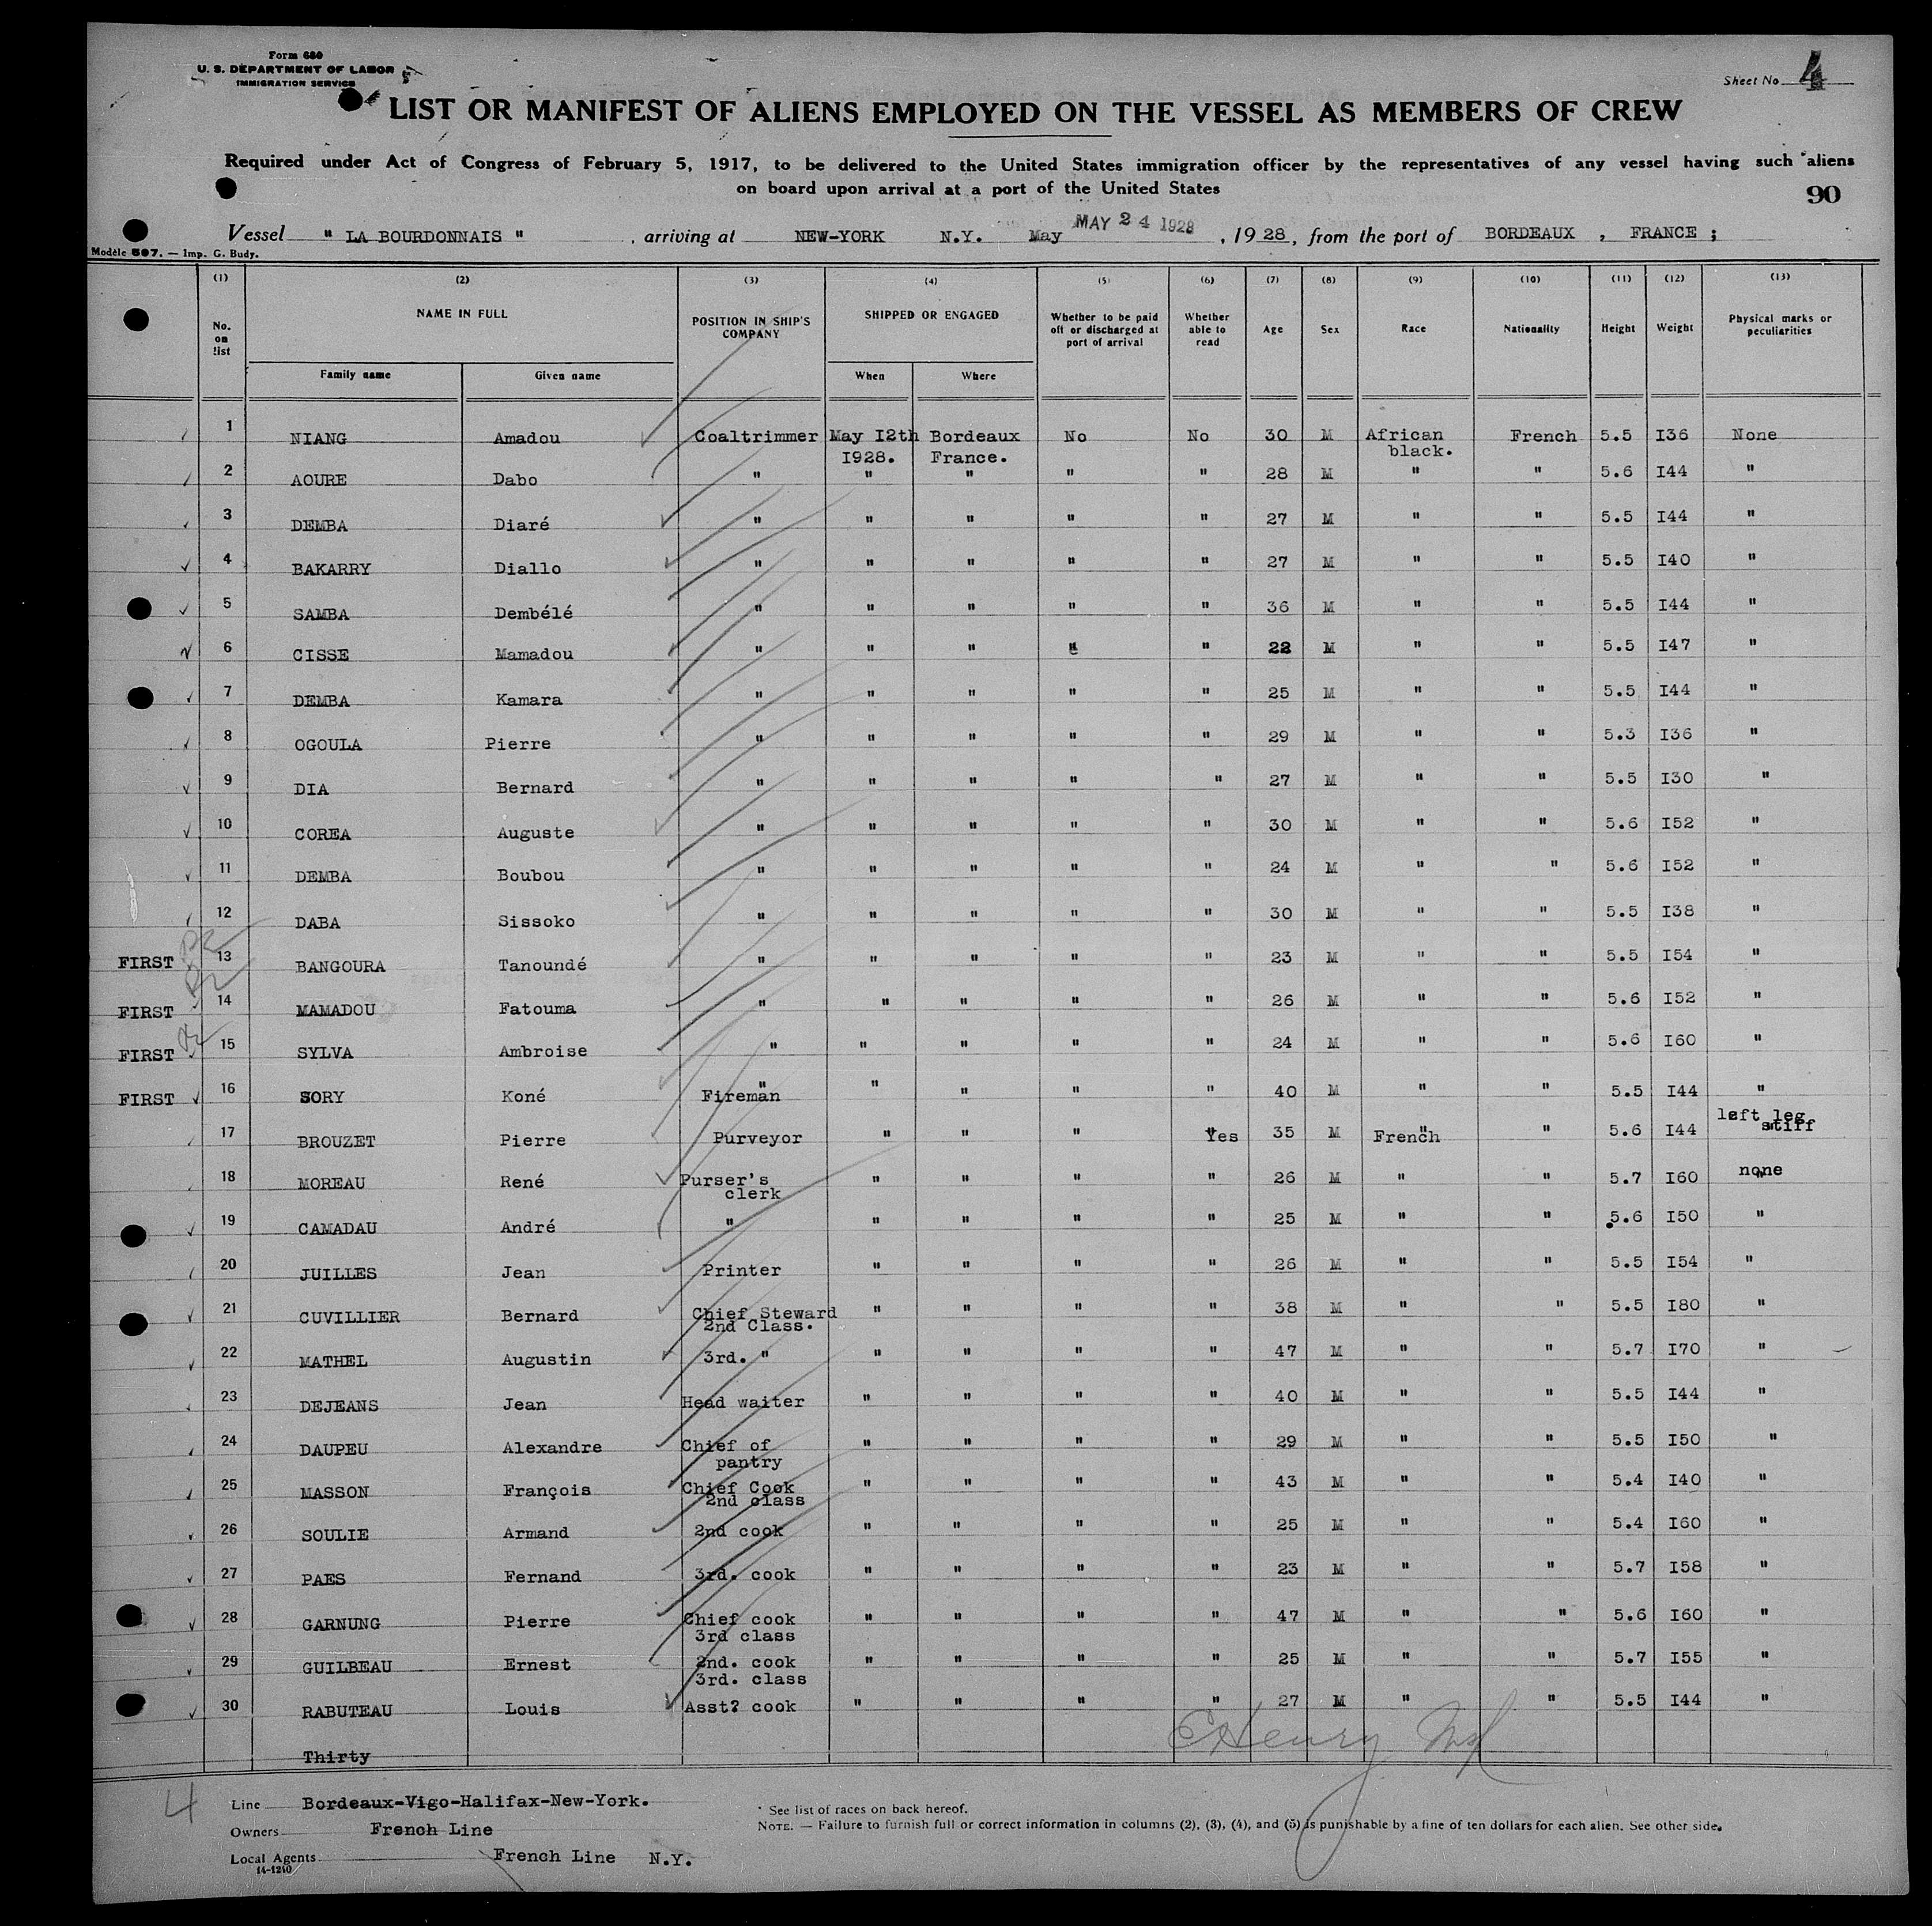 Form 680
U. S. DEPARTMENT OF LABOR
IMMIGRATION SERVICE
Sheet No 4
LIST OR MANIFEST OF ALIENS EMPLOYED ON THE VESSEL AS MEMBERS OF CREW
Required under Act of Congress of February 5, 1917, to be delivered to the United States immigration officer by the representatives of any vessel having such aliens
on board upon arrival at a port of the United States
90
Vessel " LA BOURDONNAIS " , arriving at NEW-YORK N.Y. May MAY 24 1928 , 1928, from the port of BORDEAUX , FRANCE ;
Modèle 597. — Imp. G. Budy.
(1) (2) (3) (4) (5) (6) (7) (8) (9) (10) (11) (12) (13)
No. on list NAME IN FULL POSITION IN SHIP'S COMPANY SHIPPED OR ENGAGED Whether to be paid off or discharged at port of arrival Whether able to read Age Sex Race Nationality Height Weight Physical marks or peculiarities
Family name Given name When Where
1 NIANG Amadou Coaltrimmer May I2th Bordeaux No No 30 M African French 5.5 I36 None
I928. France. black.
2 AOURE Dabo " " " " " 28 M " " 5.6 I44 "
3 DEMBA Diaré " " " " " 27 M " " 5.5 I44 "
4 BAKARRY Diallo " " " " " 27 M " " 5.5 I40 "
5 SAMBA Dembélé " " " " " 36 M " " 5.5 I44 "
6 CISSE Mamadou " " " " " 22 M " " 5.5 I47 "
7 DEMBA Kamara " " " " " 25 M " " 5.5 I44 "
8 OGOULA Pierre " " " " " 29 M " " 5.3 I36 "
9 DIA Bernard " " " " " 27 M " " 5.5 I30 "
10 COREA Auguste " " " " " 30 M " " 5.6 I52 "
11 DEMBA Boubou " " " " " 24 M " " 5.6 I52 "
12 DABA Sissoko " " " " " 30 M " " 5.5 I38 "
FIRST 13 BANGOURA Tanoundé " " " " " 23 M " " 5.5 I54 "
FIRST 14 MAMADOU Fatouma " " " " " 26 M " " 5.6 I52 "
FIRST 15 SYLVA Ambroise " " " " " 24 M " " 5.6 I60 "
FIRST 16 SORY Koné " Fireman " " " " 40 M " " 5.5 I44 "
17 BROUZET Pierre Purveyor " " " Yes 35 M French " 5.6 I44 left leg stiff
18 MOREAU René Purser's clerk " " " " 26 M " " 5.7 I60 none
19 CAMADAU André " " " " " 25 M " " 5.6 I50 "
20 JUILLES Jean Printer " " " " 26 M " " 5.5 I54 "
21 CUVILLIER Bernard Chief Steward 2nd Class. " " " " 38 M " " 5.5 I80 "
22 MATHEL Augustin 3rd. " " " " " 47 M " " 5.7 I70 "
23 DEJEANS Jean Head waiter " " " " 40 M " " 5.5 I44 "
24 DAUPEU Alexandre Chief of pantry " " " " 29 M " " 5.5 I50 "
25 MASSON François Chief Cook 2nd class " " " " 43 M " " 5.4 I40 "
26 SOULIE Armand 2nd cook " " " " 25 M " " 5.4 I60 "
27 PAES Fernand 3rd. cook " " " " 23 M " " 5.7 I58 "
28 GARNUNG Pierre Chief cook 3rd class " " " " 47 M " " 5.6 I60 "
29 GUILBEAU Ernest 2nd. cook 3rd. class " " " " 25 M " " 5.7 I55 "
30 RABUTEAU Louis Asst? cook " " " " 27 M " " 5.5 I44 "
Thirty
EHenry
4
Line Bordeaux-Vigo-Halifax-New-York.
Owners French Line
Local Agents French Line N.Y.
14-1240
* See list of races on back hereof.
NOTE. — Failure to furnish full or correct information in columns (2), (3), (4), and (5) is punishable by a fine of ten dollars for each alien. See other side.